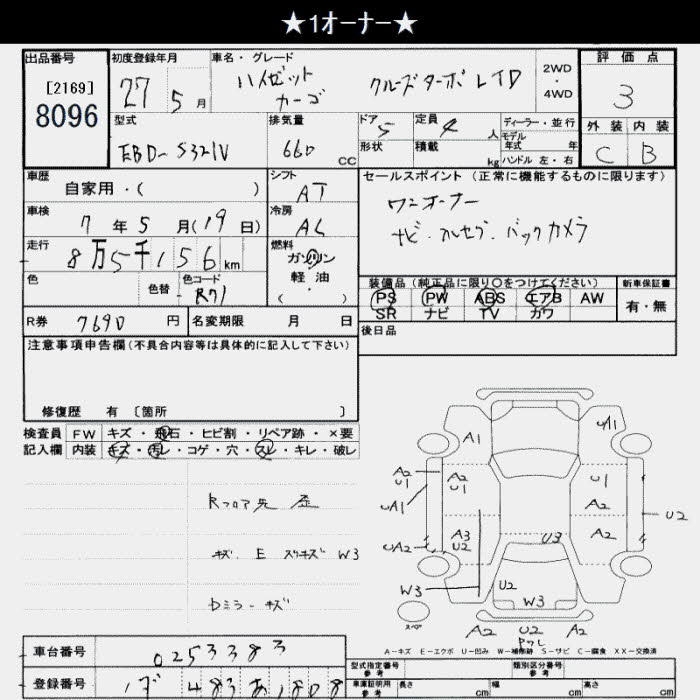 ★1オーナー★
出品番号 初度登録年月 車名・グレード 評価点
[2169] 27年 5月 ハイゼット クルーズターボ LTD 2WD・4WD 3
8096 カーゴ
型式 排気量 ドア 5 定員 4人 ディーラー・並行 外装 内装
EBD-S321V 660 CC 形状 積載 kg モデル年式 年 C B
ハンドル 左・右
車歴 シフト セールスポイント (正常に機能するものに限ります)
自家用・( ) AT ワンオーナー
車検 7年5月(19日) 冷房 AC ナビ・フルセグ・バックカメラ
走行 8万5千156km 燃料
ガソリン・軽油・( )
色 色替 色コード 装備品 (純正品に限り○をつけてください) 新車保証書
PS PW ABS エアB AW 有・無
SR ナビ TV カワ
R券 7690円 名変期限 月 日 後日品
注意事項申告欄(不具合内容等は具体的に記入して下さい)
修復歴 有 〔箇所 〕
検査員 FW キズ・飛石・ヒビ割・リペア跡・×要
記入欄 内装 キズ・汚レ・コゲ・穴・スレ・キレ・破レ
Rフロア先 歪
キズ、E スリキズ W3
Dミラーキズ
A1 A1
A2 U1 U1
A1 A2 U2
A2 A3 U2 U3 A2
W3 U2 W3
スペア A2 U2 A2
A-キズ E-エクボ U-凹み W-補修跡 S-サビ C-腐食 XX-交換済
車台番号 0253383
型式指定番号 参考 類別区分番号 参考
登録番号 483 あ1808
車庫証明用 参考 長さ cm 幅 cm 高さ cm